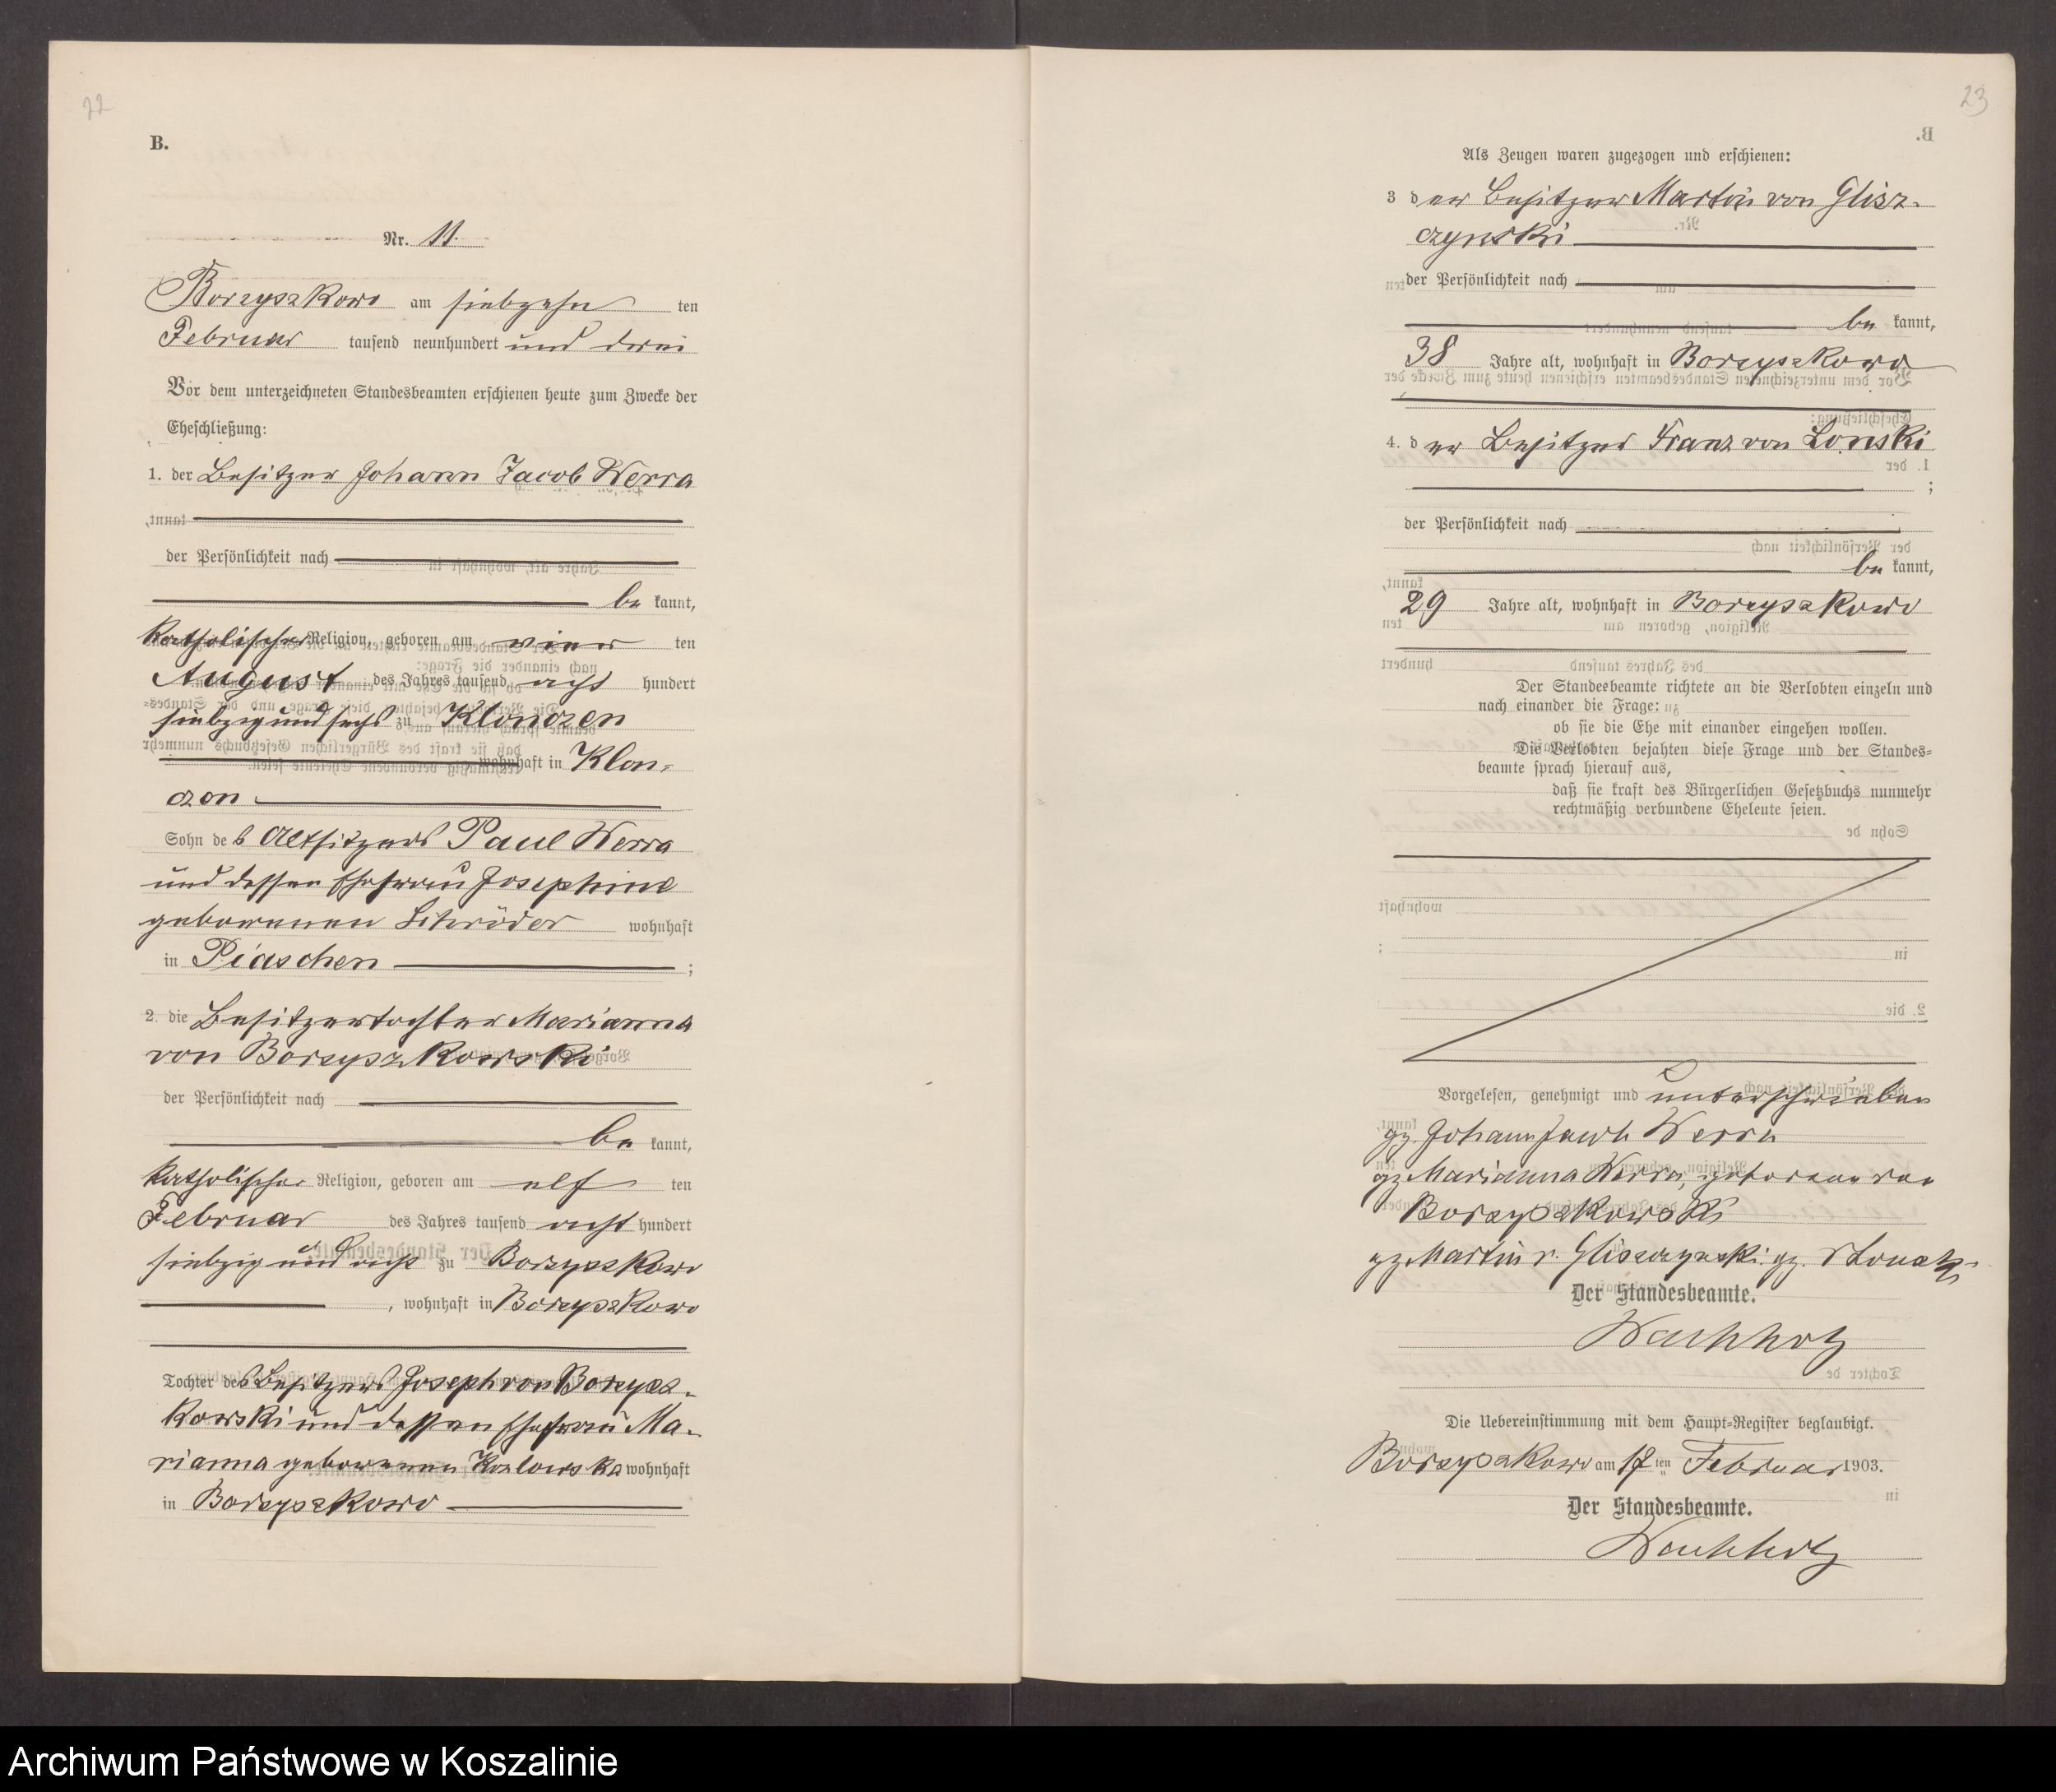 22
B.
Nr. 11.
Borzyszkowo am siebzehn ten
Februar tausend neunhundert und drei
Vor dem unterzeichneten Standesbeamten erschienen heute zum Zwecke der
Eheschließung:
1. der Besitzer Johann Jacob Werra
der Persönlichkeit nach
be kannt,
katholischer Religion, geboren am vier ten
August des Jahres tausend acht hundert
siebzig und sechs zu Klonczen
wohnhaft in Klon-
czen
Sohn des Altsitzers Paul Werra
und dessen Ehefrau Josephine
geborenen Schröder wohnhaft
in Piaschen ;
2. die Besitzertochter Marianna
von Borzyszkowski
der Persönlichkeit nach
be kannt,
katholischer Religion, geboren am elf ten
Februar des Jahres tausend acht hundert
siebzig und acht zu Borzyszkowo
, wohnhaft in Borzyszkowo
Tochter des Besitzers Joseph von Borzysz-
kowski und dessen Ehefrau Ma-
rianna geborenen Kozlowska wohnhaft
in Borzyszkowo
23
Als Zeugen waren zugezogen und erschienen:
3 der Besitzer Martin von Glisz-
czynski
der Persönlichkeit nach
be kannt,
38 Jahre alt, wohnhaft in Borzyszkowo
4. der Besitzer Franz von Lonski
;
der Persönlichkeit nach
be kannt,
29 Jahre alt, wohnhaft in Borzyszkowo
Der Standesbeamte richtete an die Verlobten einzeln und
nach einander die Frage:
ob sie die Ehe mit einander eingehen wollen.
Die Verlobten bejahten diese Frage und der Standes-
beamte sprach hierauf aus,
daß sie kraft des Bürgerlichen Gesetzbuchs nunmehr
rechtmäßig verbundene Eheleute seien.
Vorgelesen, genehmigt und unterschrieben
gz. Johann Jacob Werra
gz Marianna Werra, geborene von
Borzyszkowski
gz. Martin v. Gliszczynski. gz.
Der Standesbeamte.
Wachholz
Die Uebereinstimmung mit dem Haupt-Register beglaubigt.
Borzyszkowo am 17 ten Februar 1903.
Der Standesbeamte.
Wachholz
Archiwum Państwowe w Koszalinie